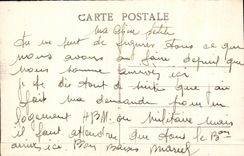 CARTE POSTALE
ma chère petite
Tu ne peut de figures tous ce que
nous avons à faire depuis que
nous somme arrivés ici
je te dis tout de suite que j'ai
fait ma demande pour un
logement HBM ou Militaire mais
il faut attendre que tous le Bon
arrive ici. Bon Baiser Marcel